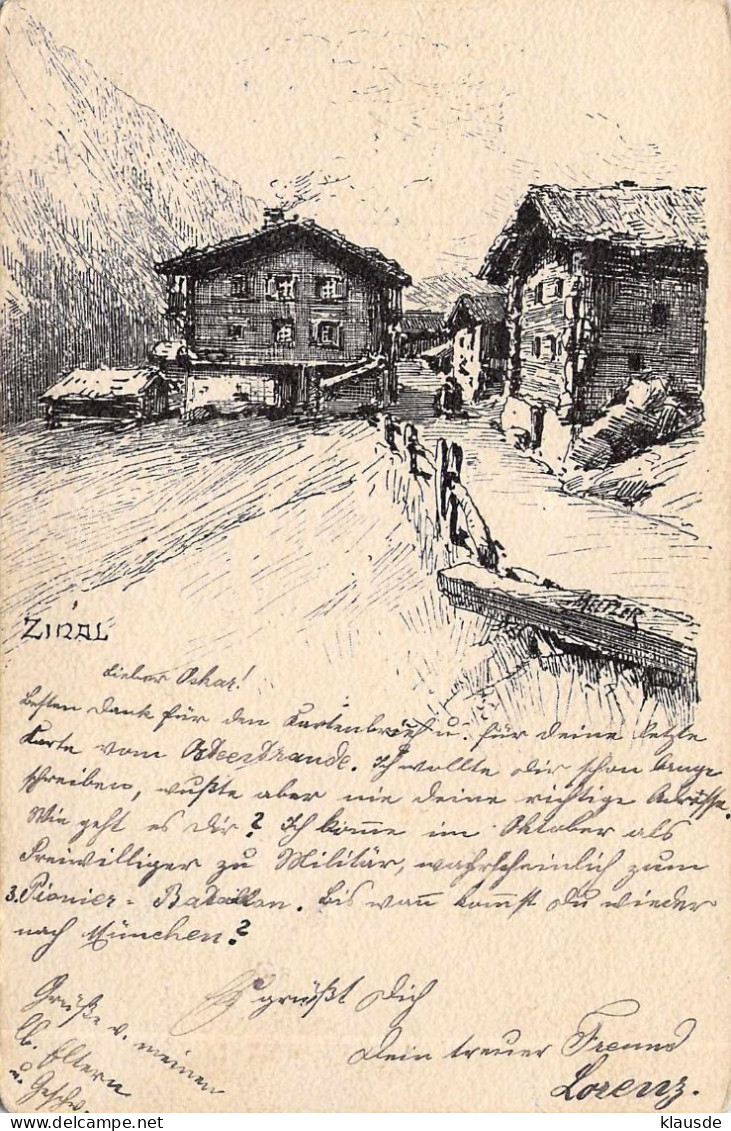 METZLER
ZINAL
Lieber Oskar!
Besten Dank für den Kartenbrief u. für deine letzte
Karte vom Meerstrande. Ich wollte dir schon lange
schreiben, wußte aber nie deine richtige Adresse.
Wie geht es dir? Ich komme im Oktober als
Freiwilliger zu Militär, wahrscheinlich zum
3. Pionier-Bataillon. Bis wann kommst du wieder
nach München?
Es grüßt Dich
Dein treuer Freund
Lorenz.
Grüße v. meinen
lb. Eltern
u. Geschw.
klausde
Copyright delcampe.net